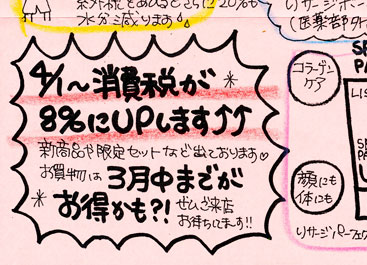 紫外線をあびるとさらに20%も
水分減ります
4/1～消費税が
8%にUPします↑↑
新商品や限定セットなど出ております♡
お買物は3月中までが
お得かも?!
ぜひご来店
お待ちしてます!!
リサージボー
(医薬部外
コラーゲン
ケア
SE
PA
LIS
顔にも
体にも
リサージパーフェク